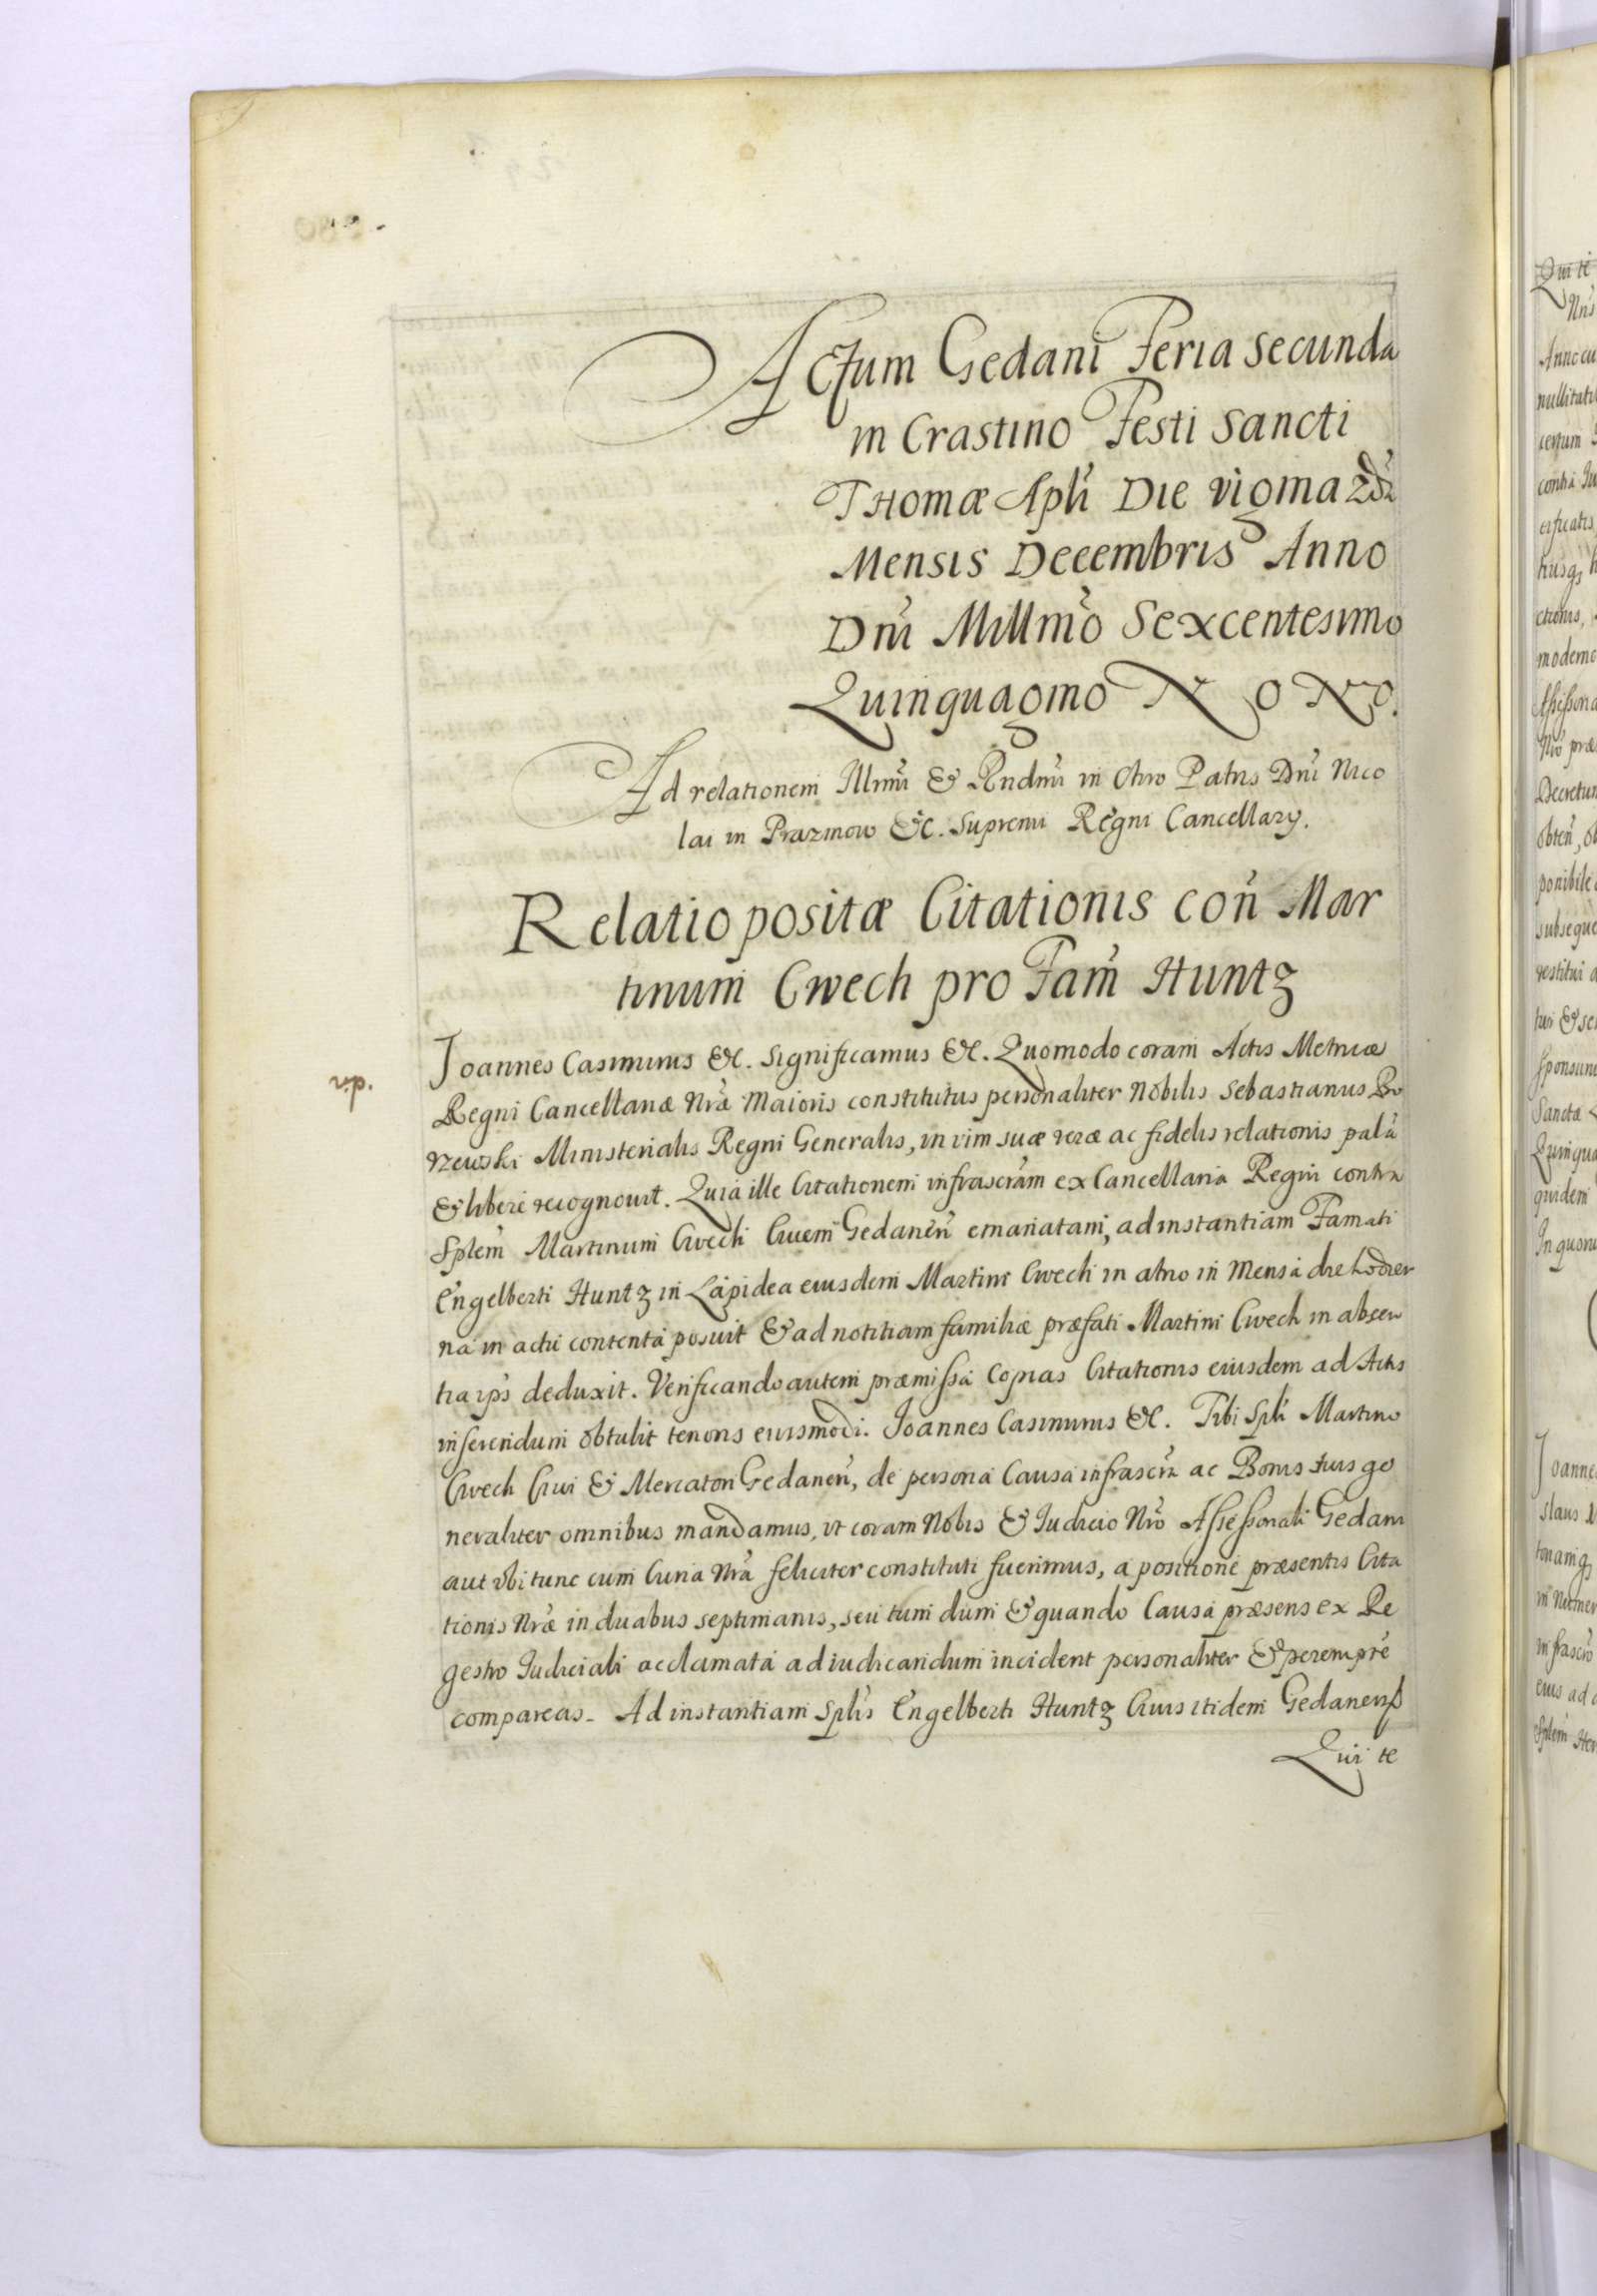 Actum Gedani Feria secunda
in Crastino Festi Sancti
Thomæ Apli Die vigma 2da
Mensis Decembris Anno
Dni Millmo Sexcentesimo
Quinquagmo Nono.
Ad relationem Illmi & Rndmi in Chro Patris Dni Nico
lai in Prazmow &c. Supremi Regni Cancellarÿ.
Relatio positæ Citationis con Mar
tinum Cwech pro Fam Huntz
r.p.
Joannes Casimirus &c. Significamus &c. Quomodo coram Actis Metricæ
Regni Cancellariæ Nræ Maioris constitutus personaliter Nobilis Sebastianus Bo
rzewski Ministerialis Regni Generalis, in vim suæ veræ ac fidelis relationis palã
& libere recognovit. Quia ille Citationem infrascram ex Cancellaria Regni contra
Splem Martinum Cwech Civem Gedanen emanatam, ad instantiam Famati
Engelberti Huntz in Lapidea eiusdem Martini Cwech in atrio in Mensa die hodier
na in actu contenta posuit & ad notitiam familiæ præfati Martini Cwech in absen
tia ips deduxit. Verificando autem præmissa Copias Citationis eiusdem ad Actis
inserendum obtulit tenoris eiusmodi. Joannes Casimirus &c. Tibi Spli Martino
Cwech Civi & Mercatori Gedanen, de persona Causa infrascra ac Bonis tuis ge
neraliter omnibus mandamus, vt coram Nobis & Iudicio Nro Assessoriali Gedani
aut vbi tunc cum Curia Nra feliciter constituti fuerimus, a positione præsentis Cita
tionis Nræ in duabus septimanis, seu tum dum & quando Causa præsens ex Re
gestro Iudiciali acclamata ad iudicandum incident personaliter & perempre
compareas. Ad instantiam Splis Engelberti Huntz Civis itidem Gedanens
Qui te
Qui te
Anno cu
certum
contra Ju
moderno
Decretum
ponibile
subseque
restitui a
Sancta
Quinqua
quidem
In quoru
Joannes
slaus